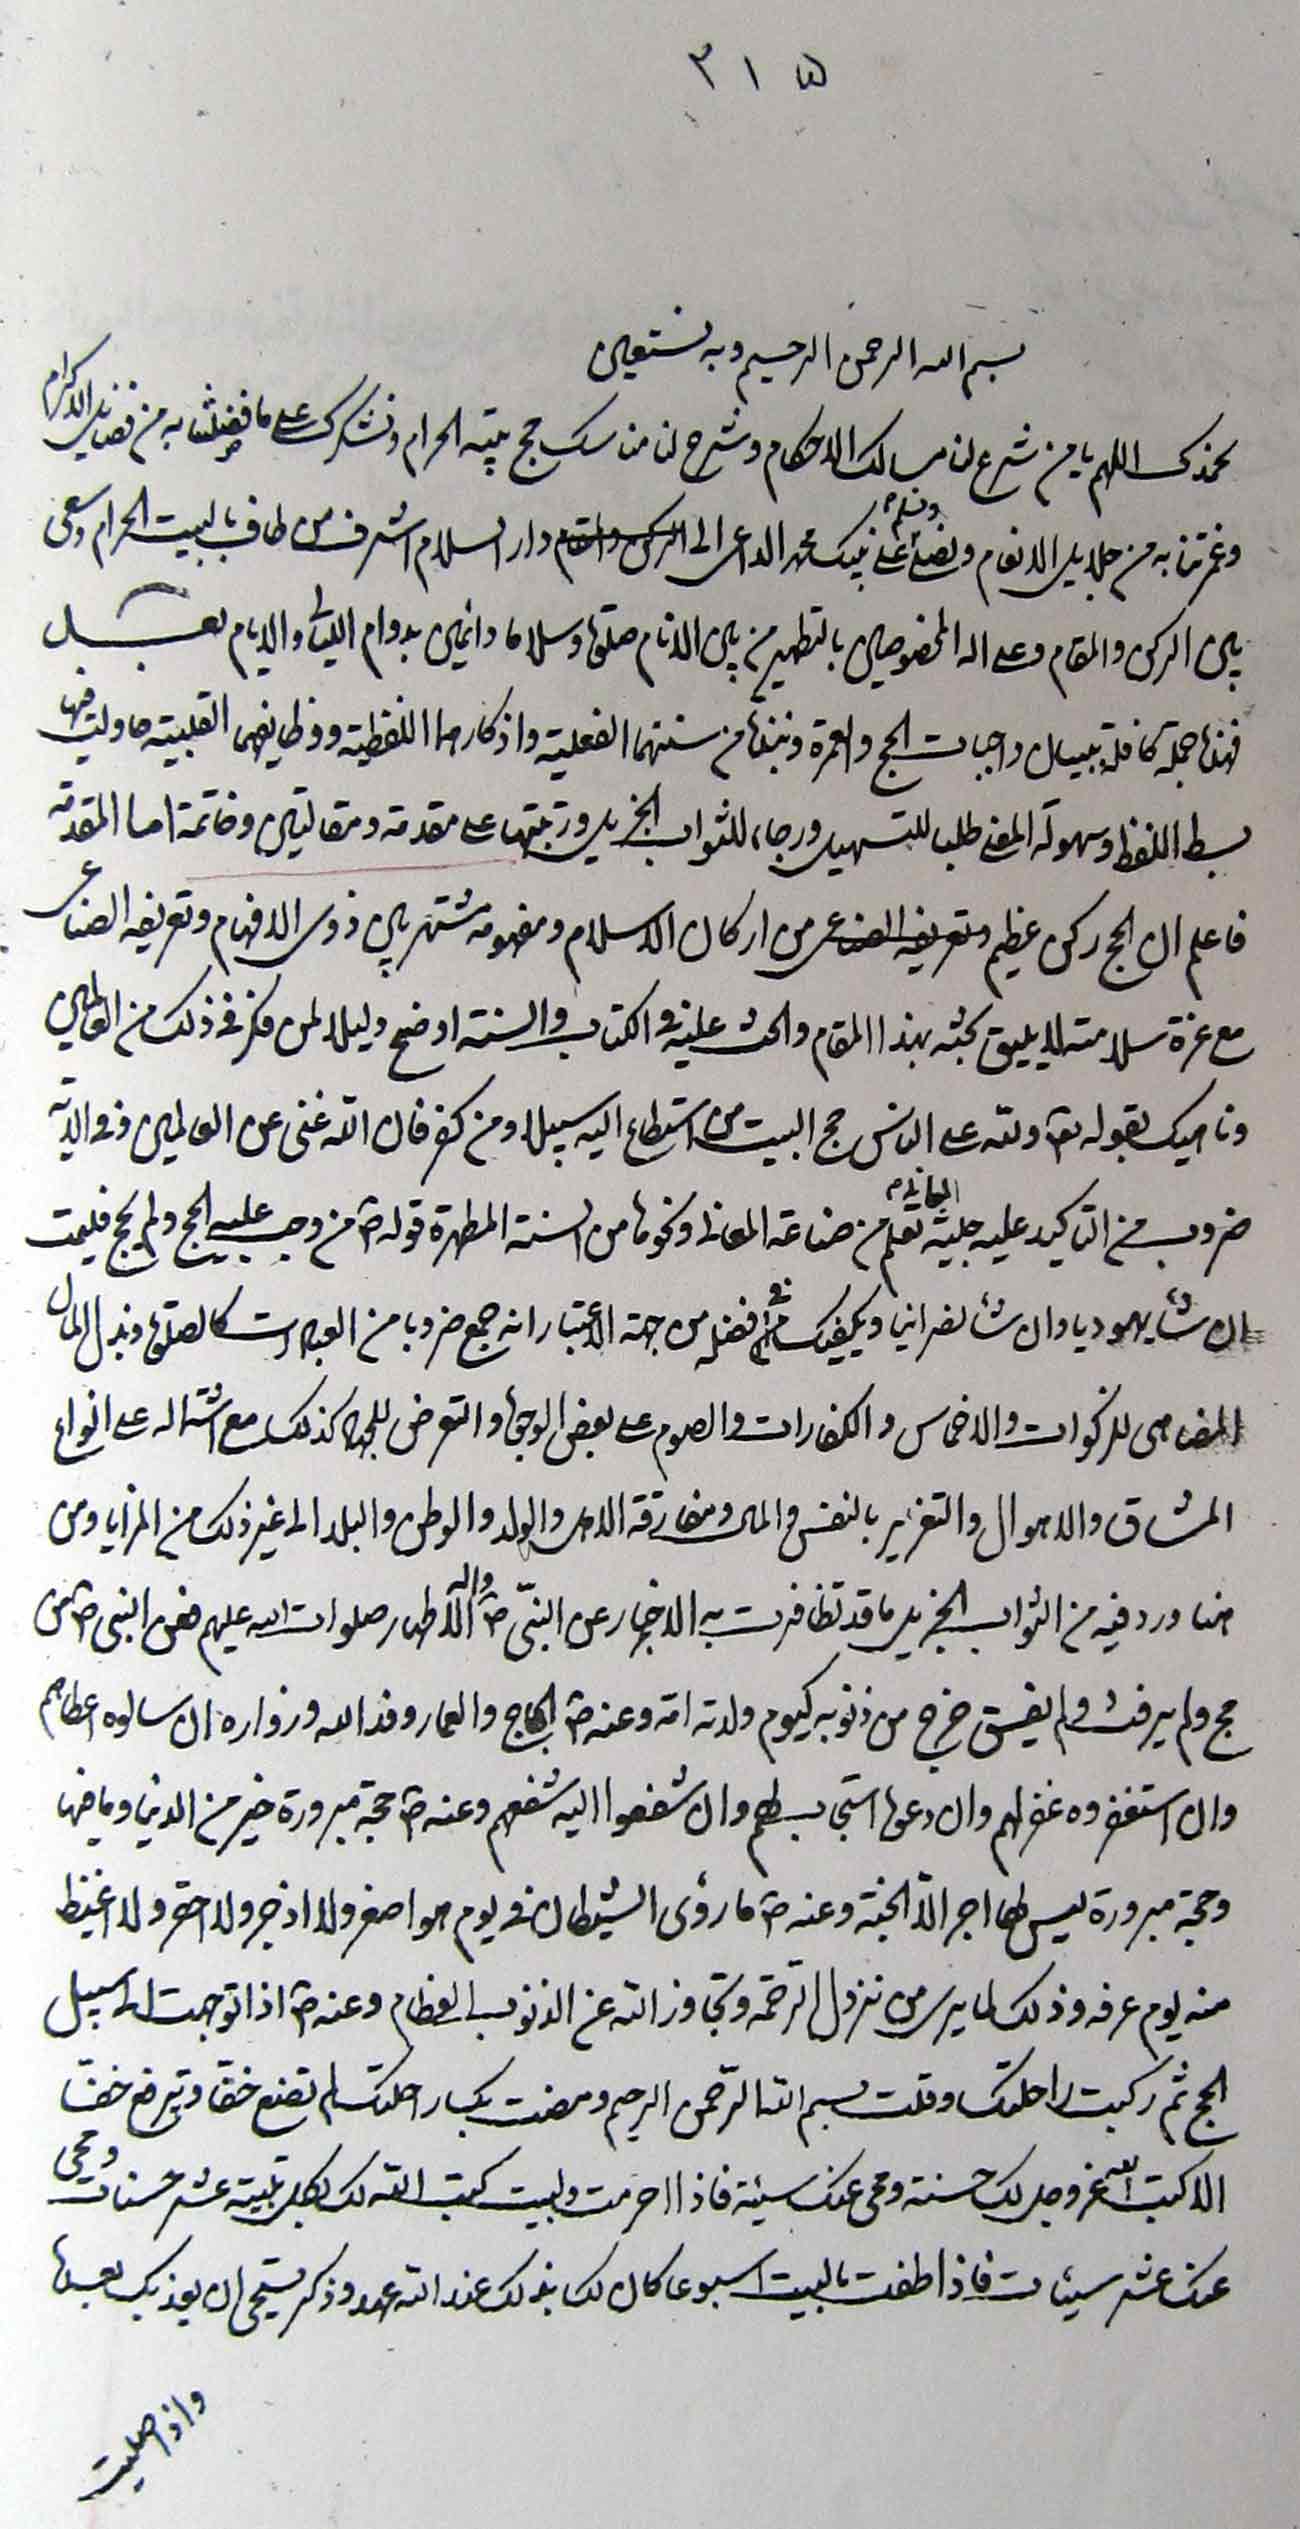 ٣١٥
بسم الله الرحمن الرحيم وبه نستعين
نحمدك اللهم يا من شرع لنا مسالك الاحكام وشرح لنا مناسك حج بيته الحرام ونشكرك على ما فضلتنا به من فضايل الاكرام
وغمرتنا به من جلايل الانعام ونصلى ونسلم على نبيك محمد الداعى الى الركن والمقام دار السلام اشرف من طاف بالبيت الحرام وسعى
بين الركن والمقام وعلى اله المخصوصين بالتطهير من بين الانام صلوة وسلاما دائمين بدوام الليالى والايام وبعد
فهذه جملة كافلة ببيان واجبات الحج والعمرة ونبذة من سننهما الفعلية واذكارهما اللفظية ووظايفهما القلبية حاولت فيها
بسط اللفظ وسهولة المعنى طلبا للتسهيل ورجاء للثواب الجزيل ورتبتها على مقدمة ومقالتين وخاتمة اما المقدمة
فاعلم ان الحج ركن عظيم وتعريفه الصناعى من اركان الاسلام ومفهومه مشتهر بين ذوى الافهام وتعريفه الصناعى
مع عزة سلامته لا يليق بحثه بهذا المقام والحث عليه فى الكتاب والسنة اوضح دليلا لمن فكر فى ذلك من العالمين
وناهيك بقوله تع ولله على الناس حج البيت من استطاع اليه سبيلا ومن كفر فان الله غنى عن العالمين وفى الاية
ضروب من التاكيد عليه جلية تعلم من صناعة المعانى ونحوها من السنة المطهرة قوله ص من وجب عليه الحج ولم يحج فليمت
ان شاء يهوديا وان شاء نصرانيا ويكفيك فى فضله من جهة الاعتبار انه جمع ضروبا من العبادات كالصلوة وبذل المال
المضاهى للزكوات والاخماس والكفارات والصوم على بعض الوجوه والتعرض للجهاد كذلك مع اشتماله على انواع
المشاق والاهوال والتغرير بالنفس والمال ومفارقة الاهل والولد والوطن والبلد الى غير ذلك من المزايا ومن
هنا ورد فيه من الثواب الجزيل ما قد تظافرت به الاخبار عن النبى ص واله الاطهار صلوات الله عليهم فعن النبى ص من
حج ولم يرفث ولم يفسق خرج من ذنوبه كيوم ولدته امه وعنه ص الحاج والعمار وفد الله وزواره ان سالوه اعطاهم
وان استغفروه غفر لهم وان دعوه استجاب لهم وان شفعوا اليه شفعهم وعنه ص حجة مبرورة خير من الدنيا وما فيها
وحجة مبرورة ليس لها اجر الا الجنة وعنه ص ما رؤى الشيطان فى يوم هو اصغر ولا ادحر ولا احقر ولا اغيظ
منه يوم عرفه وذلك لما يرى من نزول الرحمة وتجاوز الله عن الذنوب العظام وعنه ص اذا توجهت الى سبيل
الحج ثم ركبت راحلتك وقلت بسم الله الرحمن الرحيم ومضت بك راحلتك لم تضع خفا وترفع خفا
الا كتب الله عز وجل لك حسنة ومحى عنك سيئة فاذا احرمت ولبيت كتب الله لك بكل تلبية عشر حسنات ومحى
عنك عشر سيئات فاذا طفت بالبيت اسبوعا كان لك بذلك عند الله عهد وذكر يستحيى ان يعذبك بعدها
واذا صليت